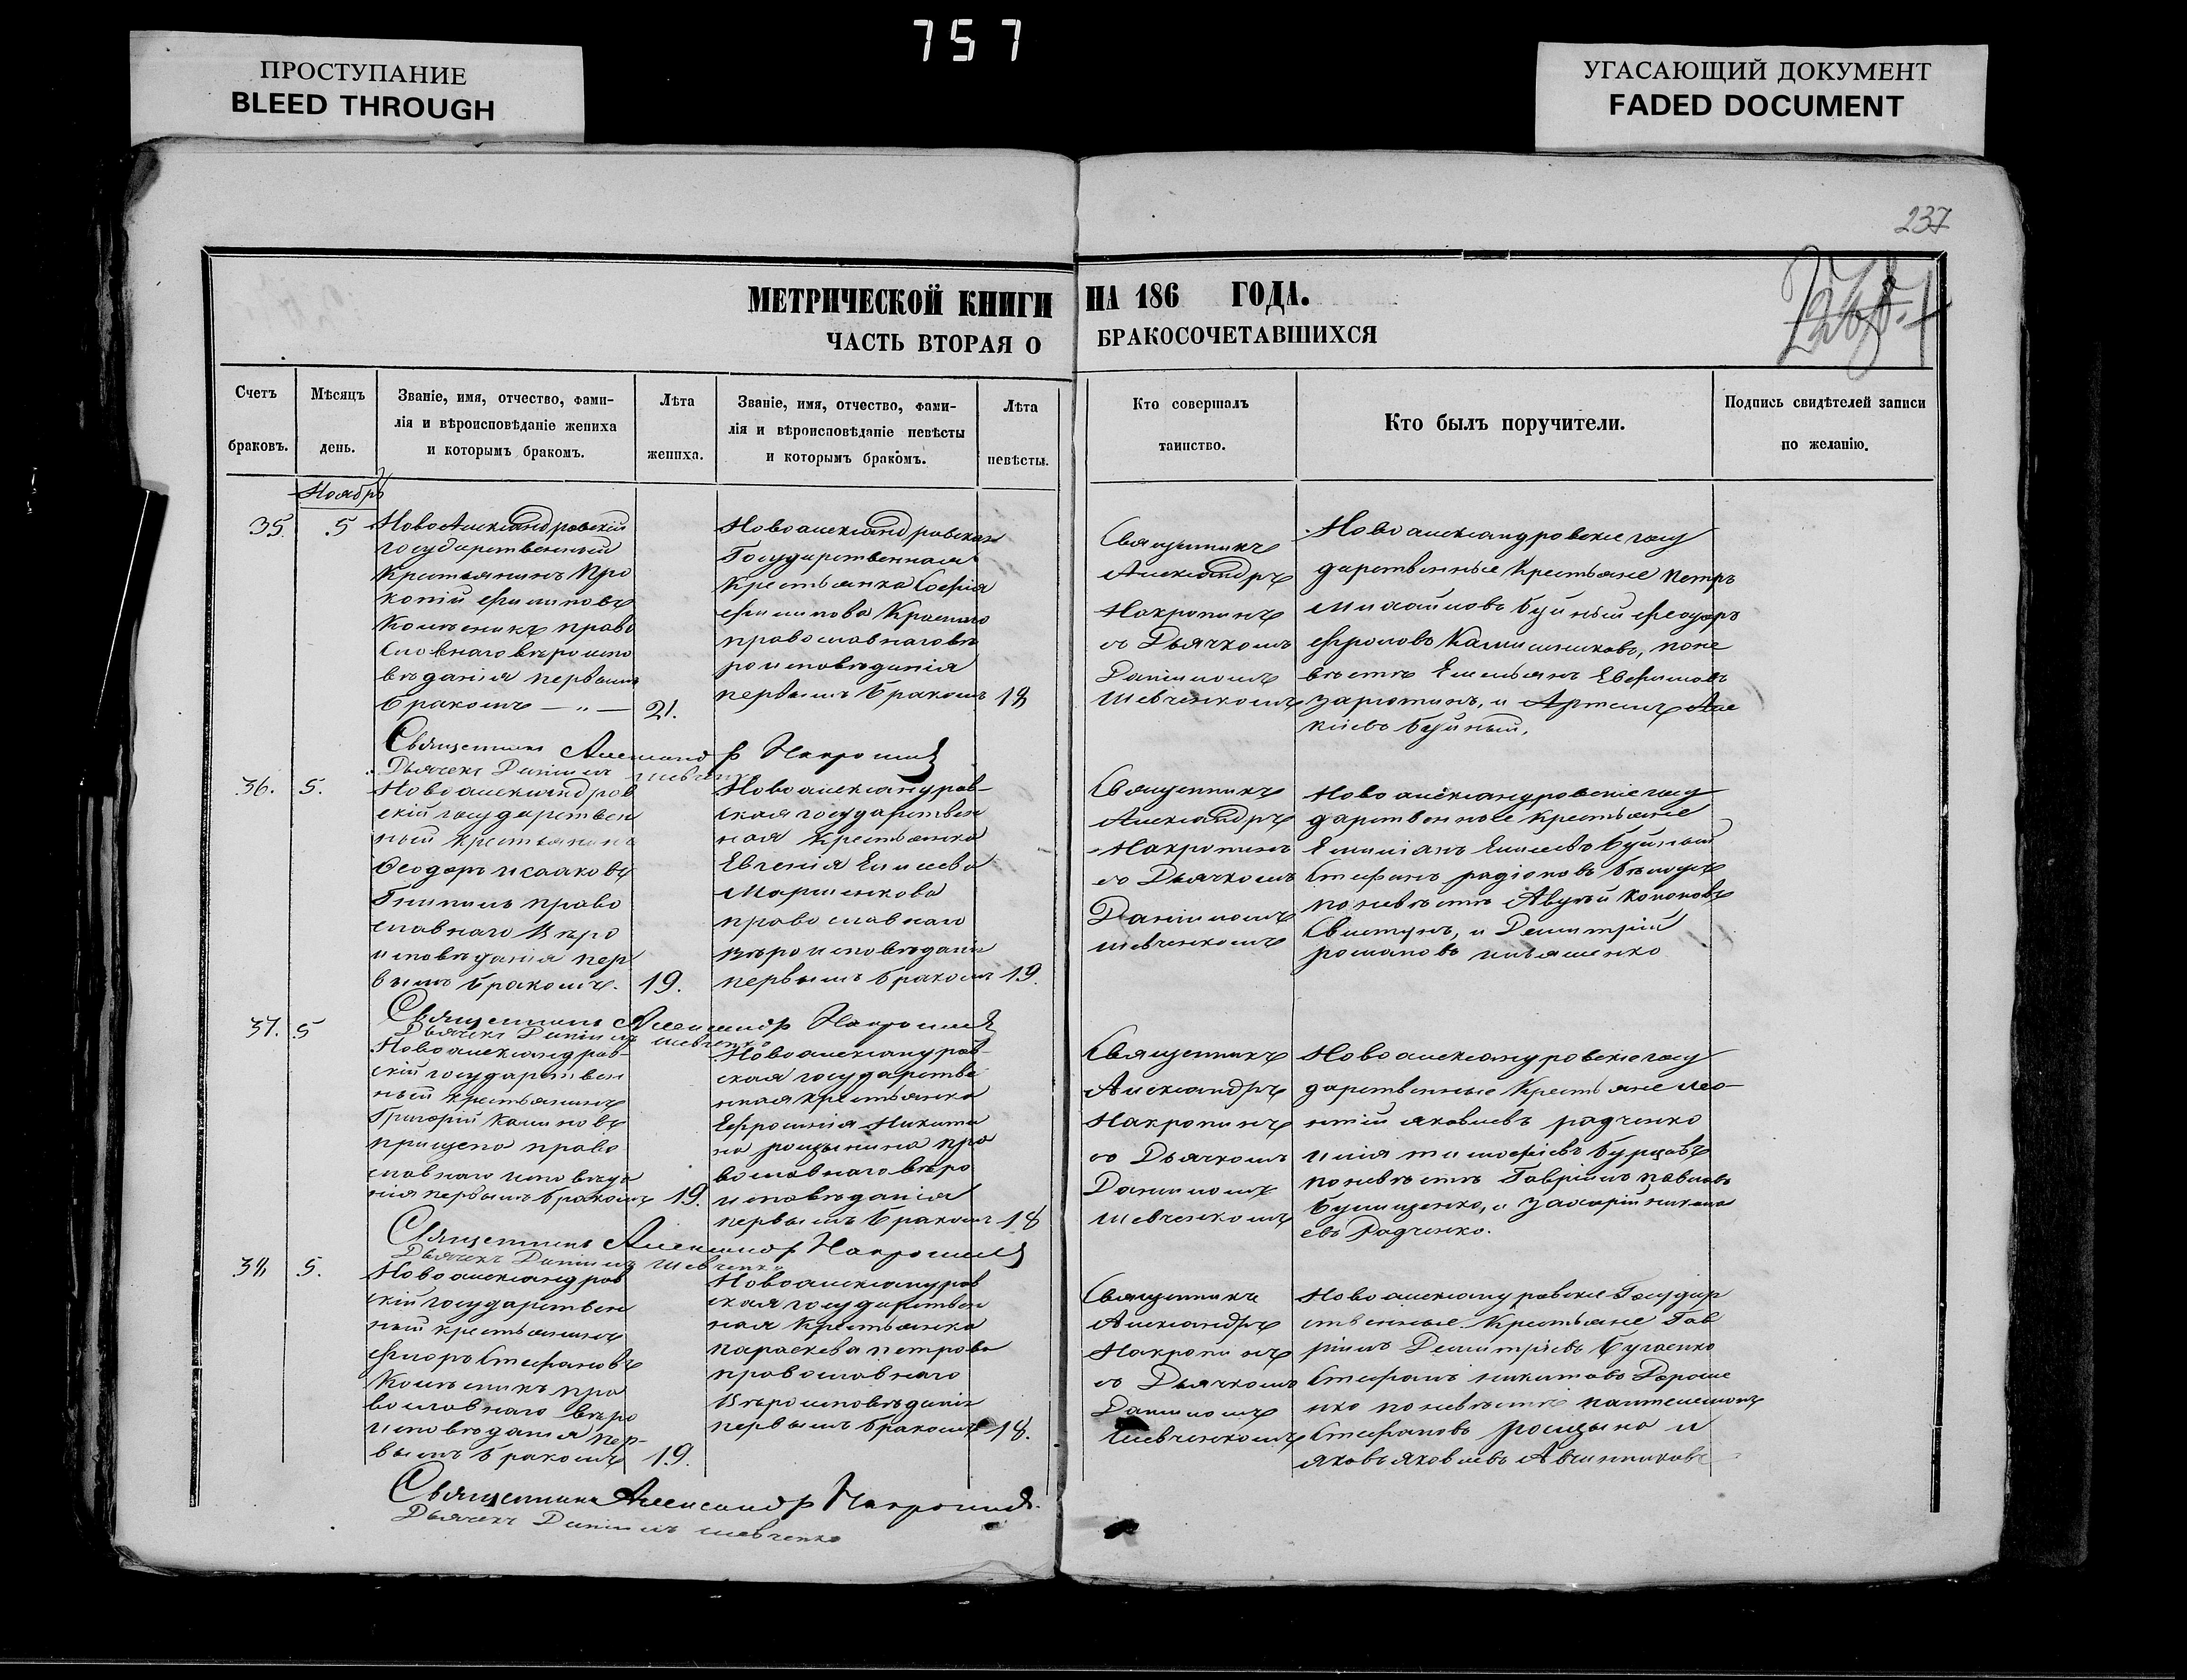 757
ПРОСТУПАНИЕ
BLEED THROUGH
УГАСАЮЩИЙ ДОКУМЕНТ
FADED DOCUMENT
237
МЕТРИЧЕСКОЙ КНИГИ НА 186 ГОДА.
ЧАСТЬ ВТОРАЯ О БРАКОСОЧЕТАВШИХСЯ
Счетъ браковъ.
Мѣсяцъ день.
Званіе, имя, отчество, фами-
лія и вѣроисповѣданіе жениха
и которымъ бракомъ.
Лѣта жениха.
Званіе, имя, отчество, фами-
лія и вѣроисповѣданіе невѣсты
и которымъ бракомъ.
Лѣта невѣсты.
Кто совершалъ
таинство.
Кто былъ поручители.
Подпись свидѣтелей записи
по желанію.
Ноябрь
35.
5
НовоАлександровскій
государственный
Крестьянинъ Про
копій Филиповъ
Колѣсникъ право
славнаго вѣроиспо
вѣданія первымъ
бракомъ — „ —
21.
Новоалександровская
Государственная
Крестьянка Софія
Филипова Краснаго
православнаго вѣ
роисповѣданія
первымъ бракомъ
18
Священникъ
Александръ
Накропинъ
съ Дьячкомъ
Даніиломъ
Шевченкомъ
Новоалександровскіе госу
дарственные Крестьяне Петръ
Михайловъ Буйный Феодоръ
Фроловъ Калашниковъ, поне
вѣстѣ Емельянъ Евфимовъ
и Артемъ Але
ксіевъ Буйный.
Священникъ Александръ Накропинъ
Дьячекъ Даніилъ Шевченко
36.
5.
Новоалександров
скій государствен
ный крестьянинъ
Феодоръ Исааковъ
право
славнаго Вѣро
исповѣданія пер
вымъ бракомъ.
19.
Новоалександров-
ская государствен
ная крестьянка
Евгенія Елисеева
православнаго
Вѣроисповѣданія
первымъ бракомъ
19.
Священникъ
Александръ
Накропинъ
съ Дьячкомъ
Даніиломъ
Шевченкомъ
Новоалександровскіе госу
дарственные крестьяне
Емиліанъ Елисеевъ Буйный
Стефанъ Радіоновъ
поневѣстѣ Авдѣй Кононовъ
Свистунъ, и Димитрій
Романовъ
Священникъ Александръ Накропинъ
Дьячекъ Даніилъ Шевченко
37.
5
Новоалександров-
скій государствен
ный крестьянинъ
Григорій Калиновъ
Прищепа право
славнаго исповѣда
нія первымъ бракомъ
19.
Новоалександров-
ская государстве
нная крестьянка
Ефросинія Никити
на Рощупкина пра
вославнаго вѣро
исповѣданія
первымъ бракомъ
18
Священникъ
Александръ
Накропинъ
со Дьячкомъ
Даниломъ
Шевченкомъ
Новоалександровскіе госу
дарственные Крестьяне Лео-
нтій Яковлевъ Радченко
Илія Тимофіевъ Бурцовъ
поневѣстѣ Гавріилъ Павловъ
и Захарій Никола
евъ Радченко.
Священникъ Александръ Накропинъ
Дьячекъ Даніилъ Шевченко
38
5.
Новоалександров
скій государствен
ный крестьянинъ
Флоръ Стефановъ
Колѣсникъ пра
вославнаго вѣро
исповѣданія пер-
вымъ бракомъ
19.
Новоалександров
ская государствен
ная Крестьянка
Параскева Петрова
православнаго
Вѣроисповѣданія
первымъ бракомъ
18.
Священникъ
Александръ
Накропинъ
съ Дьячкомъ
Даниломъ
Шевченкомъ
Новоалександровскіе Государ
ственные Крестьяне Гав
ріилъ Димитріевъ Бугаенко
Стефанъ Никитовъ Дороше
нко поневѣстѣ Пантелеймонъ
Стефановъ и
Яковъ Яковлевъ Авчинниковъ
Священникъ Александръ Накропинъ.
Дьячекъ Даніилъ Шевченко